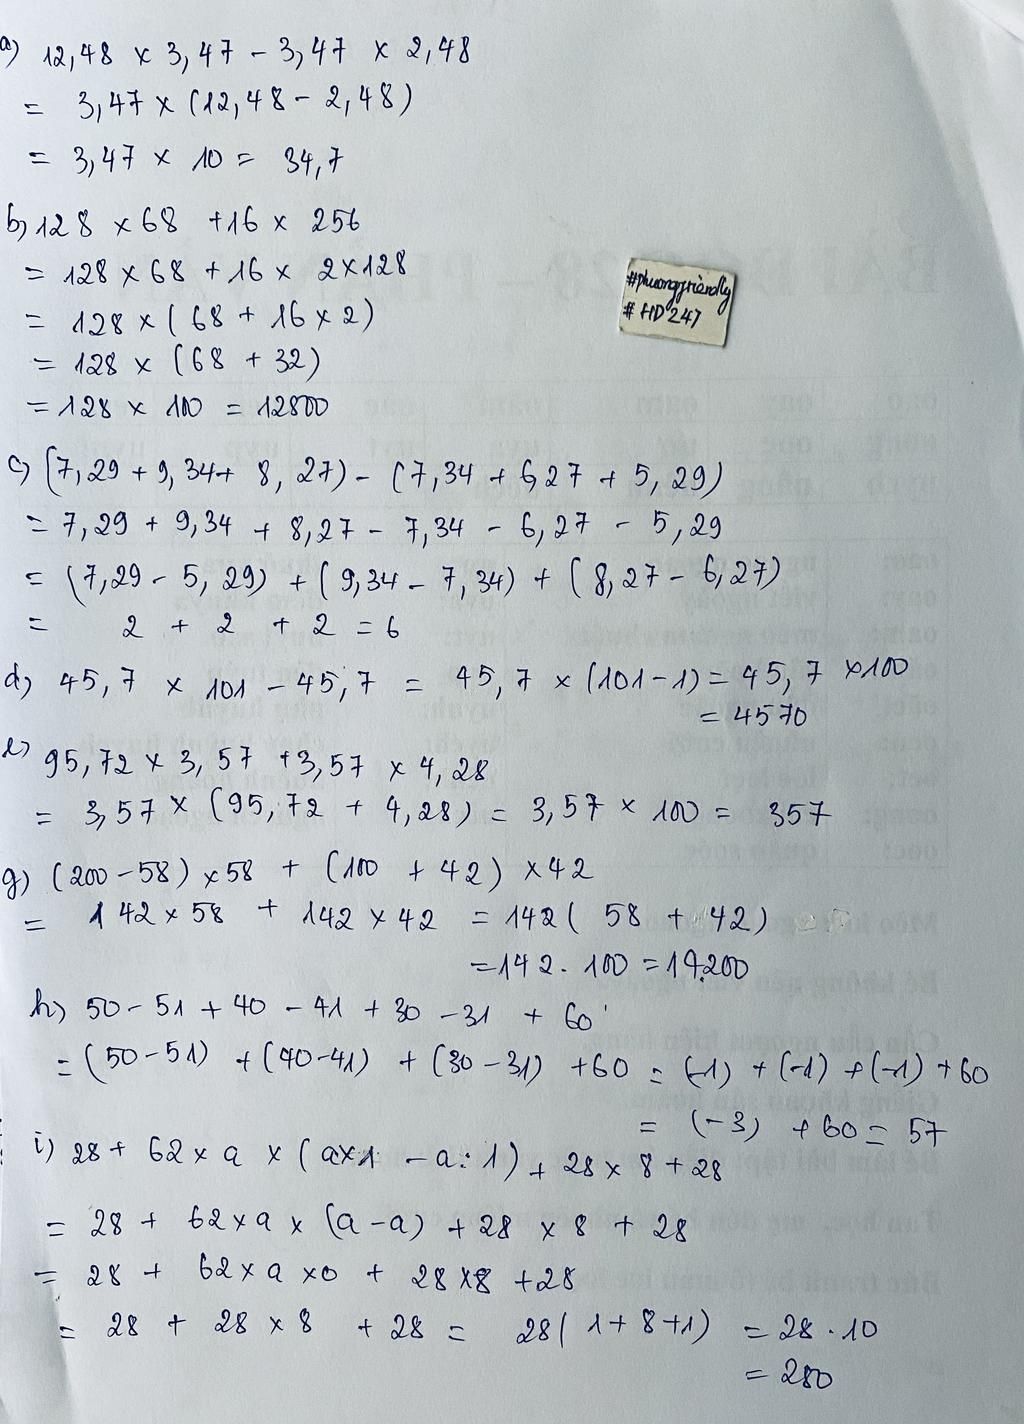 a) 12,48 x 3,47 - 3,47 x 2,48
= 3,47 x (12,48 - 2,48)
= 3,47 x 10 = 34,7
b) 128 x 68 + 16 x 256
= 128 x 68 + 16 x 2 x 128
= 128 x ( 68 + 16 x 2 )
= 128 x (68 + 32)
= 128 x 100 = 12800
#phuongfriendly
# HD 247
c) (7,29 + 9,34 + 8,27) - (7,34 + 6,27 + 5,29)
= 7,29 + 9,34 + 8,27 - 7,34 - 6,27 - 5,29
= (7,29 - 5,29) + ( 9,34 - 7,34) + ( 8,27 - 6,27)
= 2 + 2 + 2 = 6
d) 45,7 x 101 - 45,7 = 45,7 x (101 - 1) = 45,7 x 100
= 4570
e) 95,72 x 3,57 + 3,57 x 4,28
= 3,57 x (95,72 + 4,28) = 3,57 x 100 = 357
g) (200 - 58) x 58 + (100 + 42) x 42
= 142 x 58 + 142 x 42 = 142 ( 58 + 42)
= 142 . 100 = 14200
h) 50 - 51 + 40 - 41 + 30 - 31 + 60
= (50 - 51) + (40 - 41) + (30 - 31) + 60 = (-1) + (-1) + (-1) + 60
= (-3) + 60 = 57
i) 28 + 62 x a x (a x 1 - a : 1) + 28 x 8 + 28
= 28 + 62 x a x (a - a) + 28 x 8 + 28
= 28 + 62 x a x 0 + 28 x 8 + 28
= 28 + 28 x 8 + 28 = 28( 1 + 8 + 1) = 28 . 10
= 280